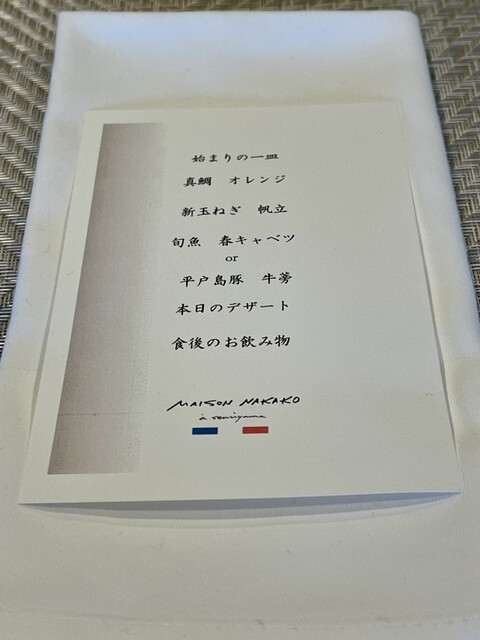 始まりの一皿
真鯛　オレンジ
新玉ねぎ　帆立
旬魚　春キャベツ
or
平戸島豚　牛蒡
本日のデザート
食後のお飲み物
MAISON NAKAKO
à